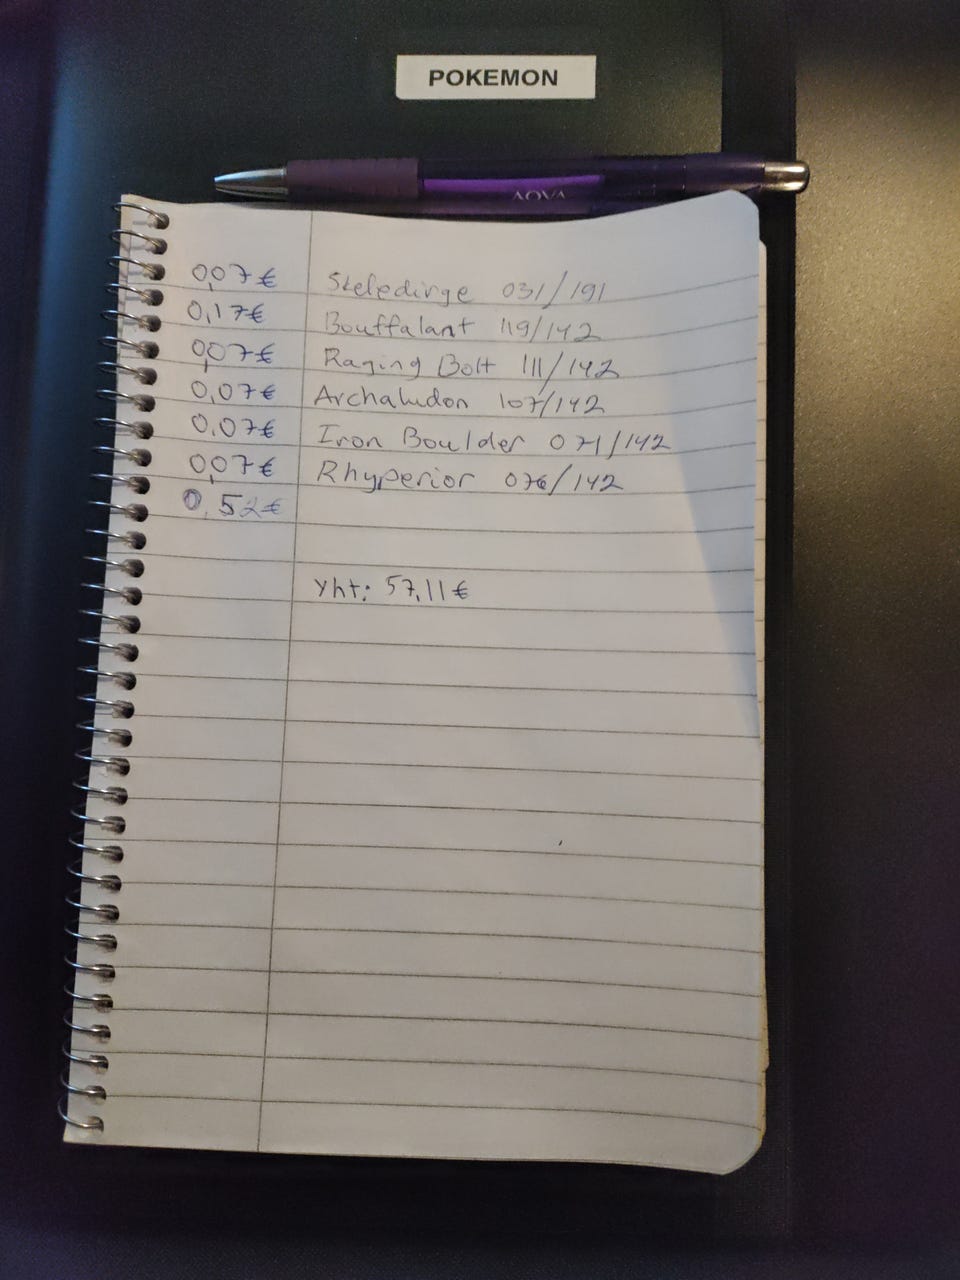 POKEMON
AQVA
0,07€ Skeledirge 031/191
0,17€ Bouffalant 119/142
0,07€ Raging Bolt 111/142
0,07€ Archaludon 107/142
0,07€ Iron Boulder 071/142
0,07€ Rhyperior 076/142
0,52€
Yht: 57,11€